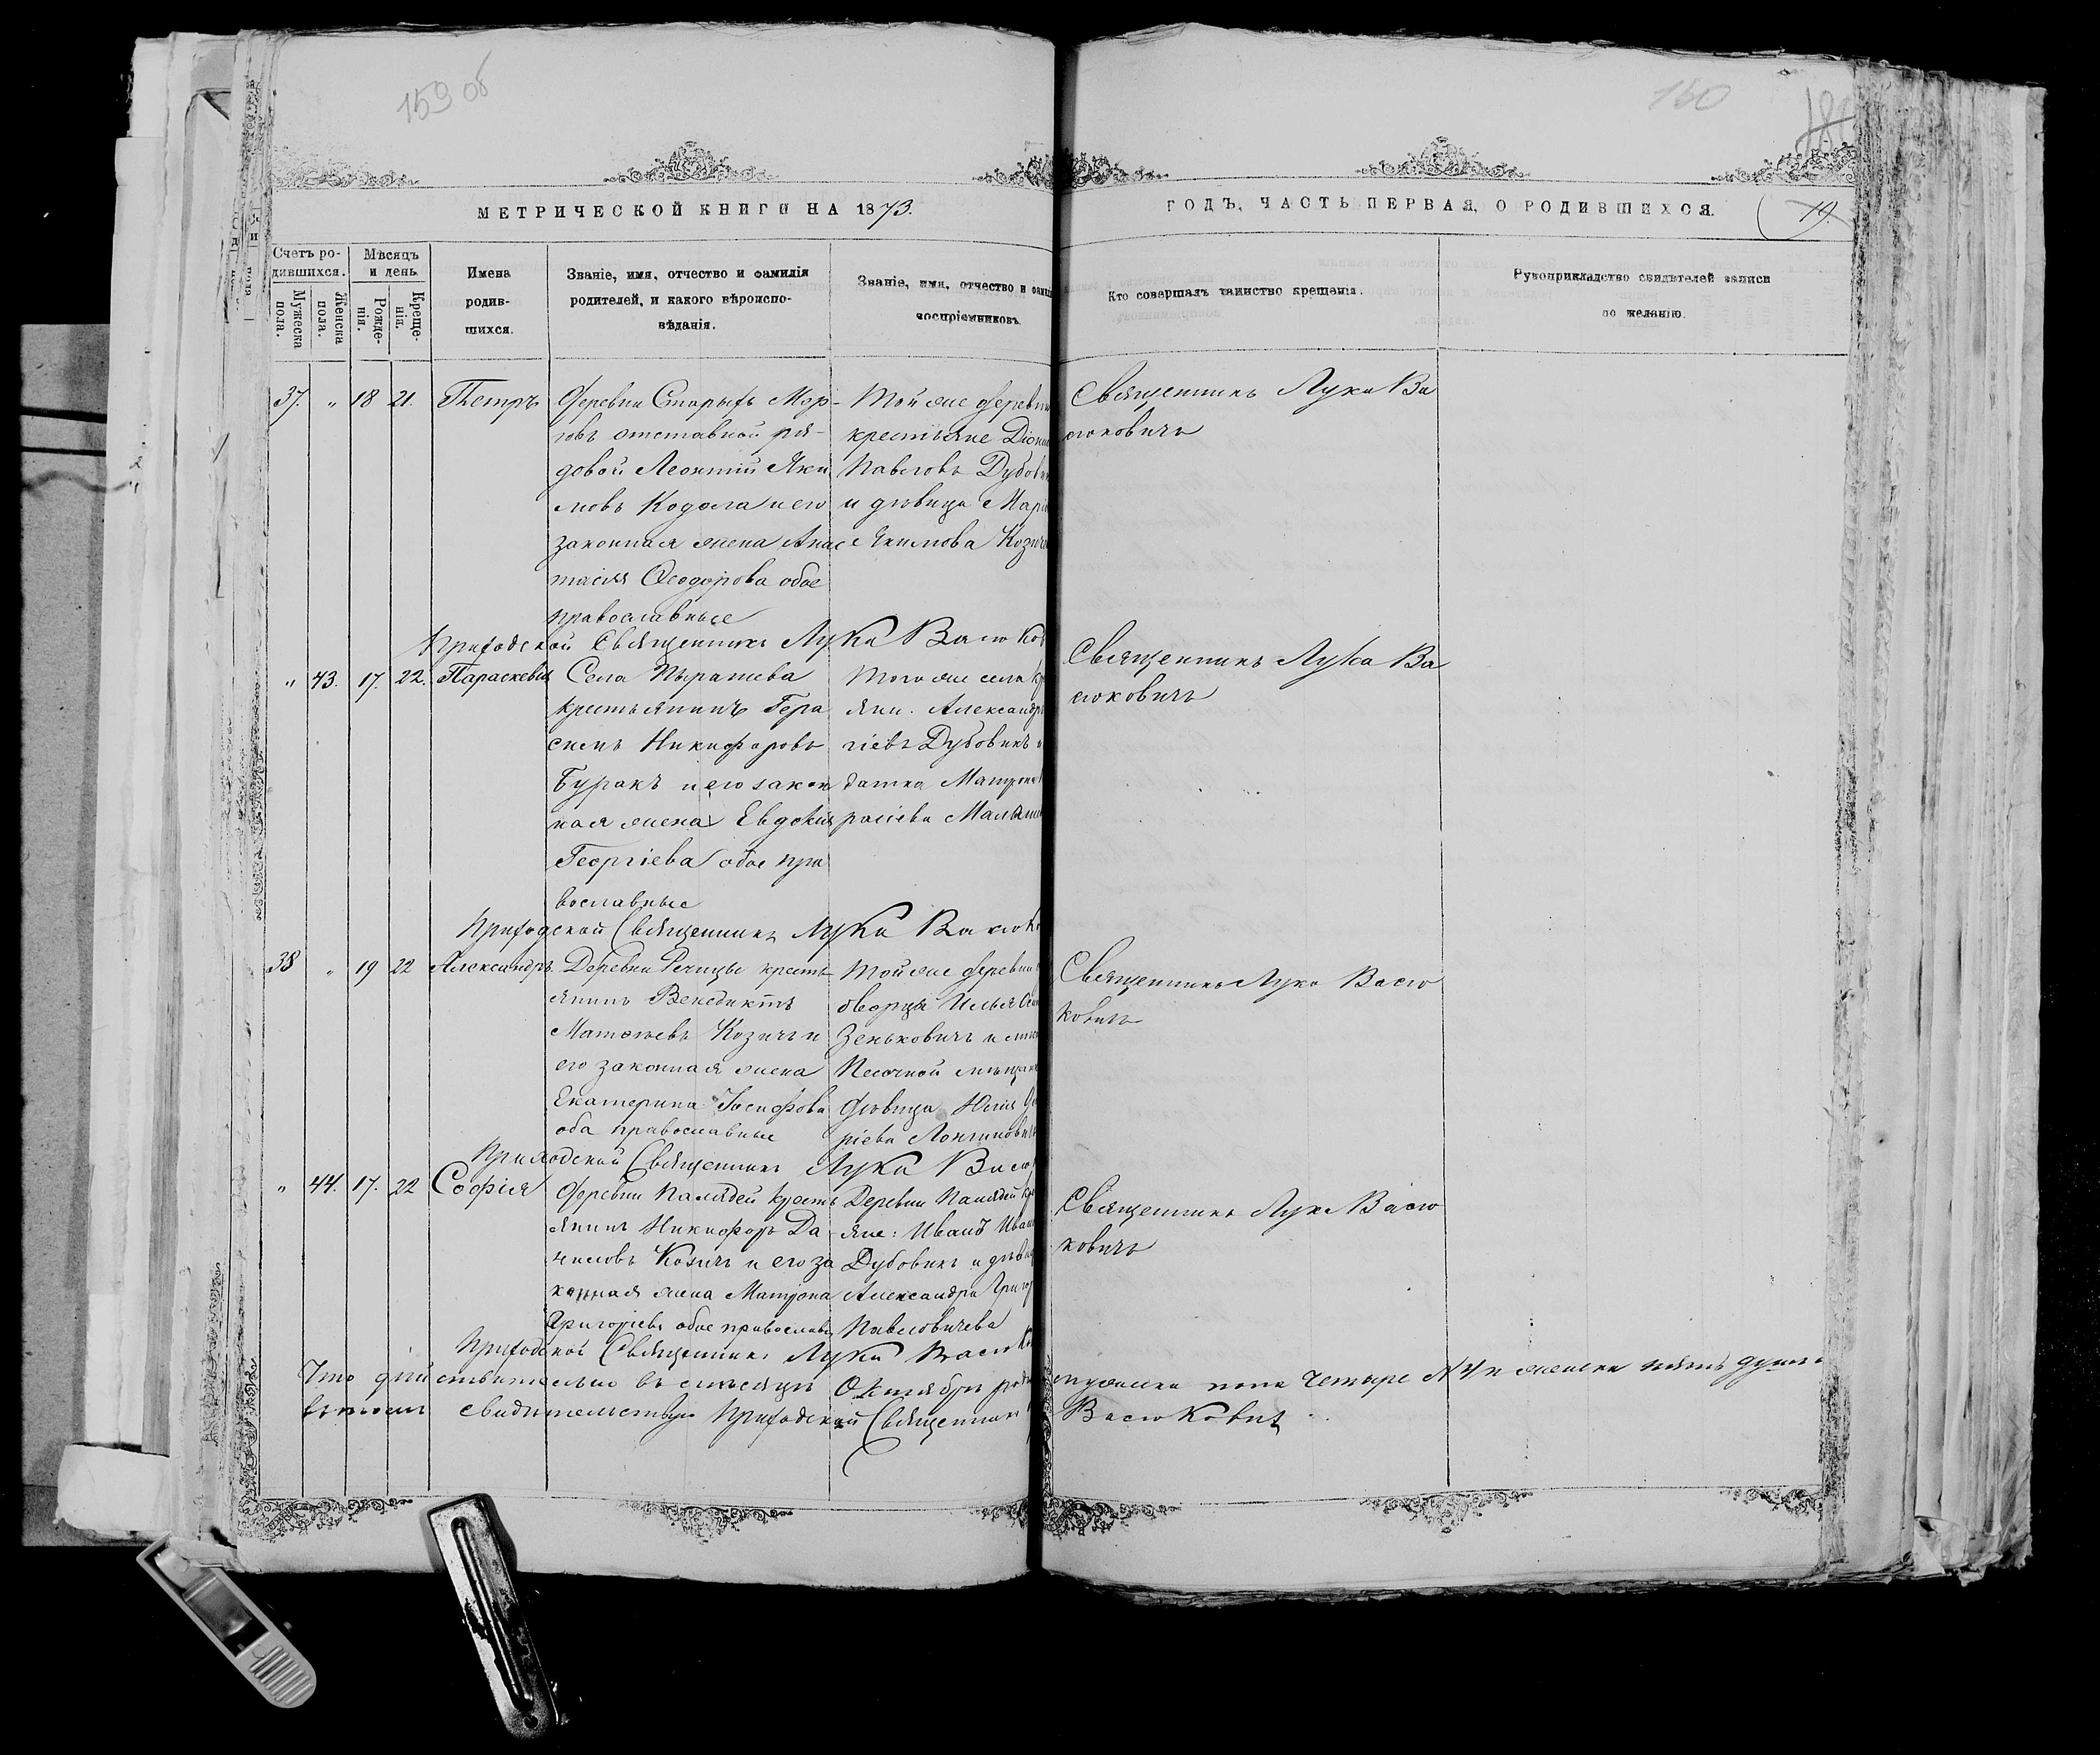 159 об
160
МЕТРИЧЕСКОЙ КНИГИ НА 1873.
ГОДЪ, ЧАСТЬ ПЕРВАЯ, О РОДИВШИХСЯ.
19.
Счетъ ро-
дившихся.
Мужеска
пола.
Женска
пола.
Мѣсяцъ
и день.
Рожде-
нія.
Креще-
нія.
Имена
родив-
шихся.
Званіе, имя, отчество и фамилія
родителей, и какого вѣроиспо-
вѣданія.
Званіе, имя, отчество и фами
воспріемниковъ.
Кто совершалъ таинство крещенія.
Рукоприкладство свидѣтелей записи
по желанію.
37. „ 18 21. Петръ
Деревни Старыхъ Мор-
говъ отставной ря-
довой Леонтій Яки
мовъ Кодола и его
законная жена Анас
тасія Ѳеодорова обое
православные
Той же деревни
крестьяне Діони
Павловъ Дубови
и дѣвица Марі
Якимова Козиче
Священникъ Лука Ва
сюковичъ
Приходской Священникъ Лука Васюков
„ 43. 17. 22. Параскевія
Села
крестьянинъ Гера
симъ Никифоровъ
Буракъ и его закон
ная жена Евдокія
Георгіева обое пра
вославные
Того же села кр
яни. Александр
гіевъ Дубовикъ и
датка Матрона
Священникъ Лука Ва
сюковичъ
Приходской Священникъ Лука Васюко
38 „ 19 22 Александръ
Деревни Речицы кресть-
янинъ Венедиктъ
Матѳеевъ Козичъ и
его законная жена
Екатерина Іосифова
оба православные
Той же деревни
оворца Илья
Зеньковичъ и
Песочной мѣщан
дѣвица Юлія
Священникъ Лука Васю
ковичъ
Приходской Священникъ Лука Васю
„ 44. 17. 22 Софія
Деревни Памядей кресть
янинъ Никифоръ Да
ниловъ Козичъ и его за
конная жена Матрона
Григорьева обое православн
Деревни Памядей кр
яне: Иванъ Иван
Дубовикъ и дѣви
Александра Григор
Павловичева
Священникъ Лука Васю
ковичъ
Приходской Священникъ Лука Васюк
Что дѣйствительно въ мѣсяцѣ Октябрѣ роди
мужеска пола четыре № 4 и женска пять душъ
въ томъ свидѣтельствую Приходской Священникъ
Васюковичъ